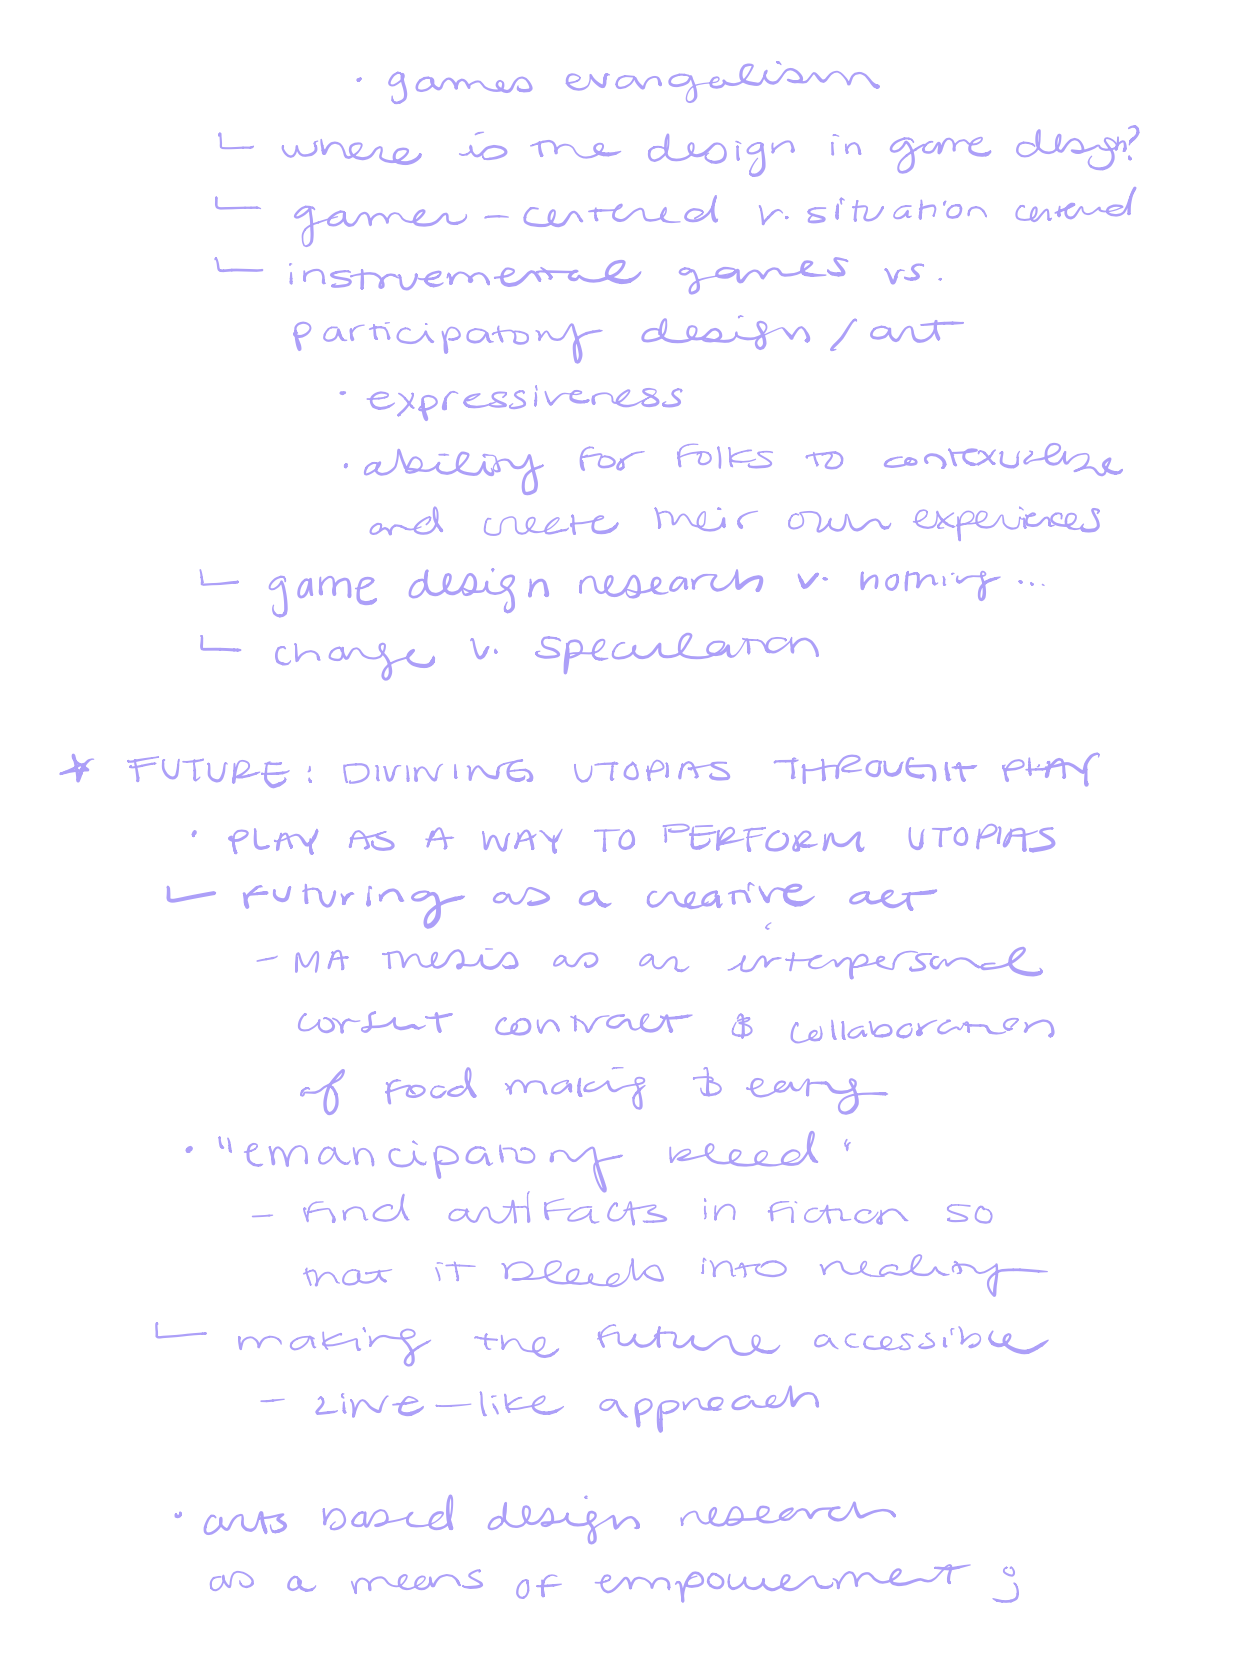 · games evangalism
└ where is the design in game design?
└ gamer-centered v. situation centered
└ instruemental games vs.
participatory design / art
· expressiveness
· ability for folks to contexualize
and create their own experiences
└ game design research v. nothing...
└ change v. speculation
★ FUTURE: DIVINING UTOPIAS THROUGH PLAY
· PLAY AS A WAY TO PERFORM UTOPIAS
└ futuring as a creative act
- MA thesis as an interpersonal
consent contract & collaboration
of food making & eating
· "emancipatory bleed"
- find artifacts in fiction so
that it bleeds into reality
└ making the future accessible
- zine-like approach
· arts based design research
as a means of empowerment